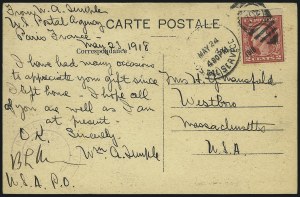 From W. A. Semple
U.S. Postal Agency
Paris France.
May 23, 1918
CARTE POSTALE
Correspondance
I have had many occasions
to appreciate your gift since
I left home. I hope all
of you are well as I am
at present.
Sincerely,
Wm A. Semple
O.K.
U.S.A. P.O.
MAY 24
430 PM
Mrs. H. G. Mansfield
Westboro
Massachusetts
U.S.A.